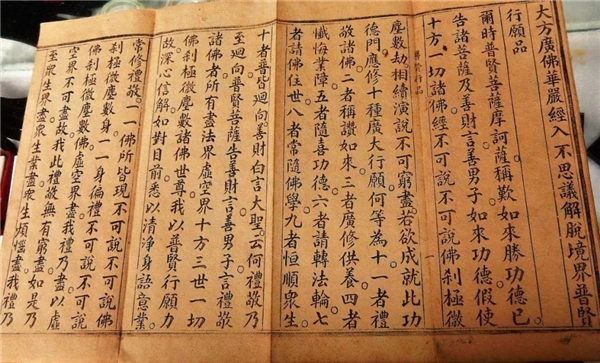 大方廣佛華嚴經入不思議解脫境界普賢
行願品
爾時普賢菩薩摩訶薩稱歎如來勝功德已。
告諸菩薩及善財言善男子如來功德假使
十方一切諸佛經不可說不可說佛剎極微
塵數劫相續演說不可窮盡。若欲成就此功
德門應修十種廣大行願。何等為十一者禮
敬諸佛。二者稱讚如來。三者廣修供養。四者
懺悔業障。五者隨喜功德。六者請轉法輪。七
者請佛住世。八者常隨佛學。九者恒順眾生。
十者普皆迴向。善財白言大聖。云何禮敬乃
至迴向。普賢菩薩告善財言善男子言禮敬
諸佛者所有盡法界虛空界十方三世一切
佛剎極微塵數諸佛世尊我以普賢行願力
故。深心信解。如對目前悉以清淨身語意業
常修禮敬。一一佛所皆現不可說不可說佛
剎極微塵數身。一一身徧禮不可說不可說
佛剎極微塵數佛。虛空界盡。我禮乃盡。以虛
空界不可盡故我此禮敬。無有窮盡。如是乃
至眾生界盡。眾生業盡。眾生煩惱盡我禮乃